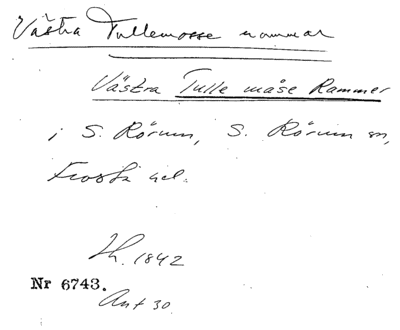 Västra Tullemosse rammar
Västra Tulle måse Rammer
i S. Rörum, S. Rörum sn,
Frosta hd.
Sk. 1842
Nr 6743.
Ant 30